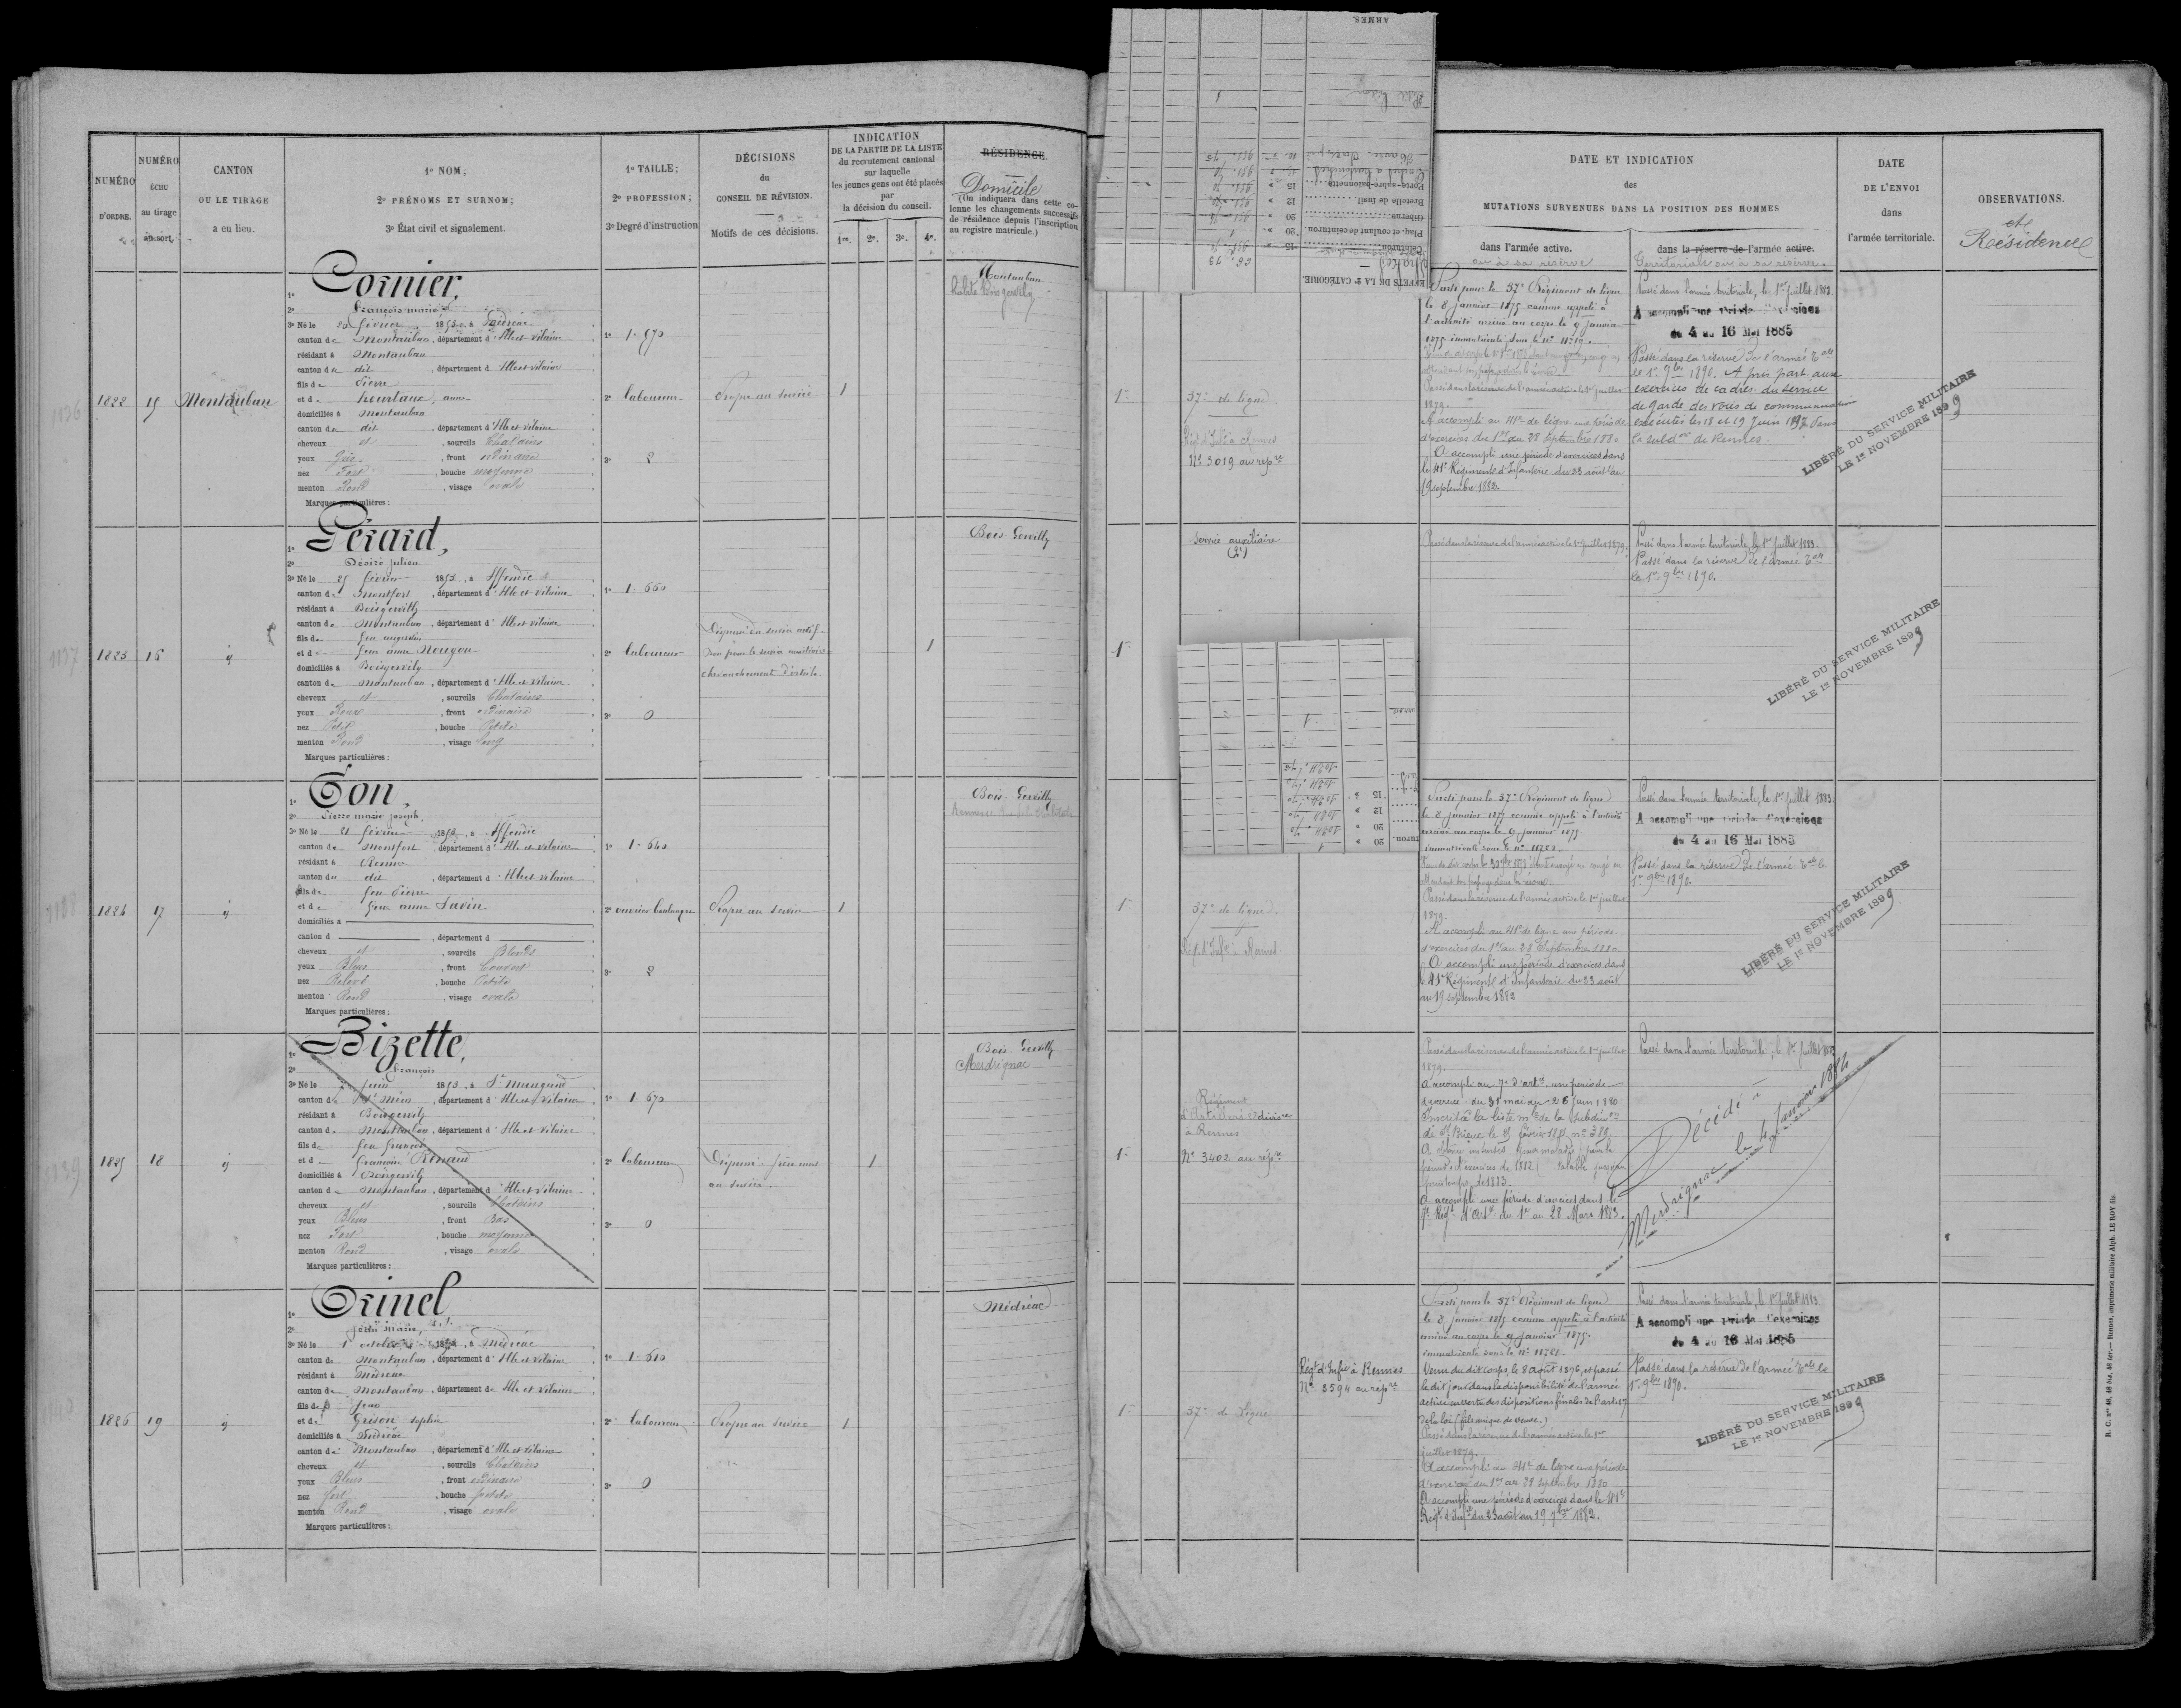 NUMÉRO
D'ORDRE.
NUMÉRO
ÉCHU
au tirage
au sort.
CANTON
OU LE TIRAGE
a eu lieu.
1º NOM;
2º PRÉNOMS ET SURNOM;
3º État civil et signalement.
1º TAILLE;
2º PROFESSION;
3º Degré d'instruction
DÉCISIONS
du
CONSEIL DE RÉVISION.
Motifs de ces décisions.
INDICATION
DE LA PARTIE DE LA LISTE
du recrutement cantonal
sur laquelle
les jeunes gens ont été placés
par
la décision du conseil.
1re. 2e. 3e. 4e.
RÉSIDENCE.
Domicile
(On indiquera dans cette co-
lonne les changements successifs
de résidence depuis l'inscription
au registre matricule.)
1822
15
Montauban
Cornier,
2º François marie
3º Né le 20 février 1853, à Médréac
canton de Montauban, département d'Ille et Vilaine
résidant à Montauban
canton du dit, département d'Ille et Vilaine
fils de Pierre
et de anne
domiciliés à Montauban
canton du dit, département d'Ille et Vilaine
cheveux et, sourcils Chatains
yeux Gris, front ordinaire
nez Fort, bouche moyenne
menton Rond, visage ovale
Marques particulières:
1º 1.670
2º laboureur
3º 2
Propre au service
1
Montauban
habite Boisgervilly
1823
16
Gérard,
2º Désiré Julien
3º Né le 25 février 1853, à Iffendic
canton de Montfort, département d'Ille et Vilaine
résidant à Boisgervilly
canton de Montauban, département d'Ille et Vilaine
fils de feu
et de feue anne Nougon
domiciliés à Boisgervilly
canton de Montauban, département d'Ille et Vilaine
cheveux et, sourcils Chatains
yeux Roux, front ordinaire
nez Petit, bouche Petite
menton Rond, visage long
Marques particulières:
1º 1.660
2º laboureur
3º 0
Dispensé du service actif
Bon pour le service auxiliaire
chevauchement d'orteils.
1
Bois-Gervilly
1824
17
Ton,
2º Pierre marie joseph,
3º Né le 21 février 1853, à Iffendic
canton de Montfort, département d'Ille et Vilaine
résidant à Rennes
canton du dit, département d'Ille et Vilaine
fils de feu Pierre
et de feue anne Savin
domiciliés à
canton d, département d
cheveux et, sourcils Blonds
yeux Bleus, front Couvert
nez Relevé, bouche Petite
menton Rond, visage ovale
Marques particulières:
1º 1.640
2º ouvrier boulanger
3º 2
Propre au service
1
Bois-Gervilly
1825
18
Bizette,
2º François
3º Né le juin 1853, à St Maugand
canton de St Méen, département d'Ille et Vilaine
résidant à Boisgervily
canton de Montauban, département d'Ille et Vilaine
fils de feu françois
et de françoise Renaud
domiciliés à Boisgervily
canton de Montauban, département d'Ille et Vilaine
cheveux et, sourcils Chatains
yeux Bleus, front Bas
nez Fort, bouche moyenne
menton Rond, visage ovale
Marques particulières:
1º 1.670
2º laboureur
3º 0
Dispensé
au service.
1
Bois-Gervilly
Merdrignac
1826
19
Orinel
2º Jean Marie,
3º Né le 1 octobre 1853, à Médréac
canton de Montauban, département d'Ille et Vilaine
résidant à Médréac
canton de Montauban, département de Ille et Vilaine
fils de Jean
et de Grison sophie
domiciliés à Médréac
canton de Montauban, département d'Ille et Vilaine
cheveux et, sourcils Chatains
yeux Bleus, front ordinaire
nez fort, bouche petite
menton Rond, visage ovale
Marques particulières:
1º 1.610
2º laboureur
3º 0
Propre au service
1
Médréac
ARMES.
Porte-sabre-baïonnette 15 »
Bretelle de fusil 12 »
Giberne 20 »
Plaq. et coulant de ceinturon. 20 »
Ceinturon 15 »
EFFETS DE LA 2e CATÉGORIE.
DATE ET INDICATION
des
MUTATIONS SURVENUES DANS LA POSITION DES HOMMES
dans l'armée active.
ou à sa réserve
dans la réserve de l'armée active.
territoriale ou à sa réserve.
DATE
DE L'ENVOI
dans
l'armée territoriale.
OBSERVATIONS.
et
Résidence
1re
37e de ligne
Régt d'Infie à Rennes
Nº 3019 au répre
Parti pour le 37e Régiment de ligne
le 8 janvier 1875 comme appelé à
l'activité arrivé au corps le 9 janvier
1875 immatriculé sous le nº 11719.
Passé dans la réserve de l'armée active le 1er juillet
1879.
A accompli au 41e de ligne une période
d'exercices du 1er au 28 septembre 1880
A accompli une période d'exercices dans
le 41e Régiment d'Infanterie du 23 août au
19 septembre 1882.
Passé dans l'armée territoriale, le 1er juillet 1883.
A accompli une période d'exercices
du 4 au 16 Mai 1885
Passé dans la réserve de l'armée Tale
le 1er 9bre 1890. A pris part aux
exercices de cadres du service
de garde des voies de communication
exécutés les 18 et 19 Juin 1897 dans
la subdon de Rennes.
LIBÉRÉ DU SERVICE MILITAIRE
LE 1er NOVEMBRE 1899
1re
Service auxiliaire
Passé dans la réserve de l'armée active le 1er juillet 1879.
Passé dans l'armée territoriale, le 1er juillet 1883.
Passé dans la réserve de l'armée Tale
le 1er 9bre 1890.
LIBÉRÉ DU SERVICE MILITAIRE
LE 1er NOVEMBRE 1899
15 »
12 »
20 »
20 »
1re
37e de ligne
Régt d'Infie à Rennes
Parti pour le 37e Régiment de ligne
le 8 janvier 1875 comme appelé à l'activité
arrivé au corps le 9 janvier 1875.
immatriculé sous le nº 11720.
Passé dans la réserve de l'armée active le 1er juillet
1879.
A accompli au 41e de ligne une période
d'exercices du 1er au 28 Septembre 1880
A accompli une période d'exercices dans
le 41e Régiment d'Infanterie du 23 août
au 19 septembre 1882
Passé dans l'armée territoriale, le 1er juillet 1883.
A accompli une période d'exercices
du 4 au 16 Mai 1885
Passé dans la réserve de l'armée Tale le
1er 9bre 1890.
LIBÉRÉ DU SERVICE MILITAIRE
LE 1er NOVEMBRE 1899
1re
Régiment
d'Artillerie
à Rennes
Nº 3402 au répre
Passé dans la réserve de l'armée active le 1er juillet
1879.
A accompli au 7e d'artie une période
d'exercices du 31 mai au 26 juin 1880
Inscrit à la liste mle de la subdivon
de St Brieuc le 25 février 1882 nº 389
période d'exercices de 1882
printemps de 1883.
A accompli une période d'exercices dans le
7e Régt d'Artie du 1er au 28 Mars 1883.
Passé dans l'armée territoriale, le 1er juillet 1883
Décédé à
Merdrignac le 4 Janvier 1884
1re
37e de Ligne
Régt d'Infie à Rennes
Nº 3594 au répre
Parti pour le 37e Régiment de ligne
le 8 janvier 1875 comme appelé à l'activité
arrivé au corps le 9 janvier 1875.
immatriculé sous le nº 11721.
Venu du dit corps, le 8 août 1876, et passé
le dit jour dans la disponibilité de l'armée
active en vertu des dispositions finales de l'art. 17
de la loi (fils unique de veuve.)
Passé dans la réserve de l'armée active le 1er
juillet 1879.
A accompli au 41e de ligne une période
d'exercices du 1er au 28 septembre 1880
A accompli une période d'exercices dans le 41e
Régt d'Infie du 23 août au 19 7bre 1882.
Passé dans l'armée territoriale, le 1er juillet 1883.
A accompli une période d'exercices
du 4 au 16 Mai 1885
Passé dans la réserve de l'armée Tale le
1er 9bre 1890.
LIBÉRÉ DU SERVICE MILITAIRE
LE 1er NOVEMBRE 1899
R. C. nos 48, 48 bis, 48 ter. — Rennes, imprimerie militaire Alph. LE ROY fils